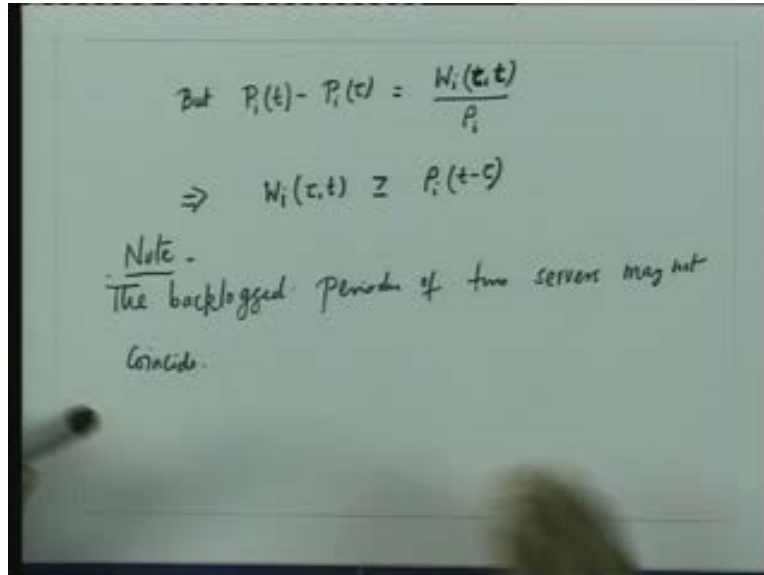 But P_i(t) - P_i(τ) = W_i(τ,t) / ρ_i
⇒ W_i(τ,t) ≥ ρ_i(t-τ)
Note -
The backlogged periods of two servers may not
Coincide.